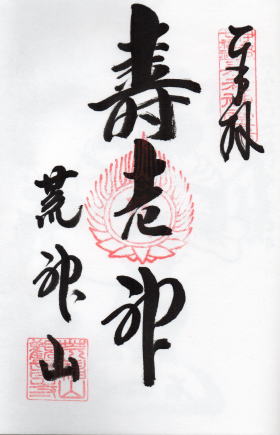 奉拝
寿老神
荒神山